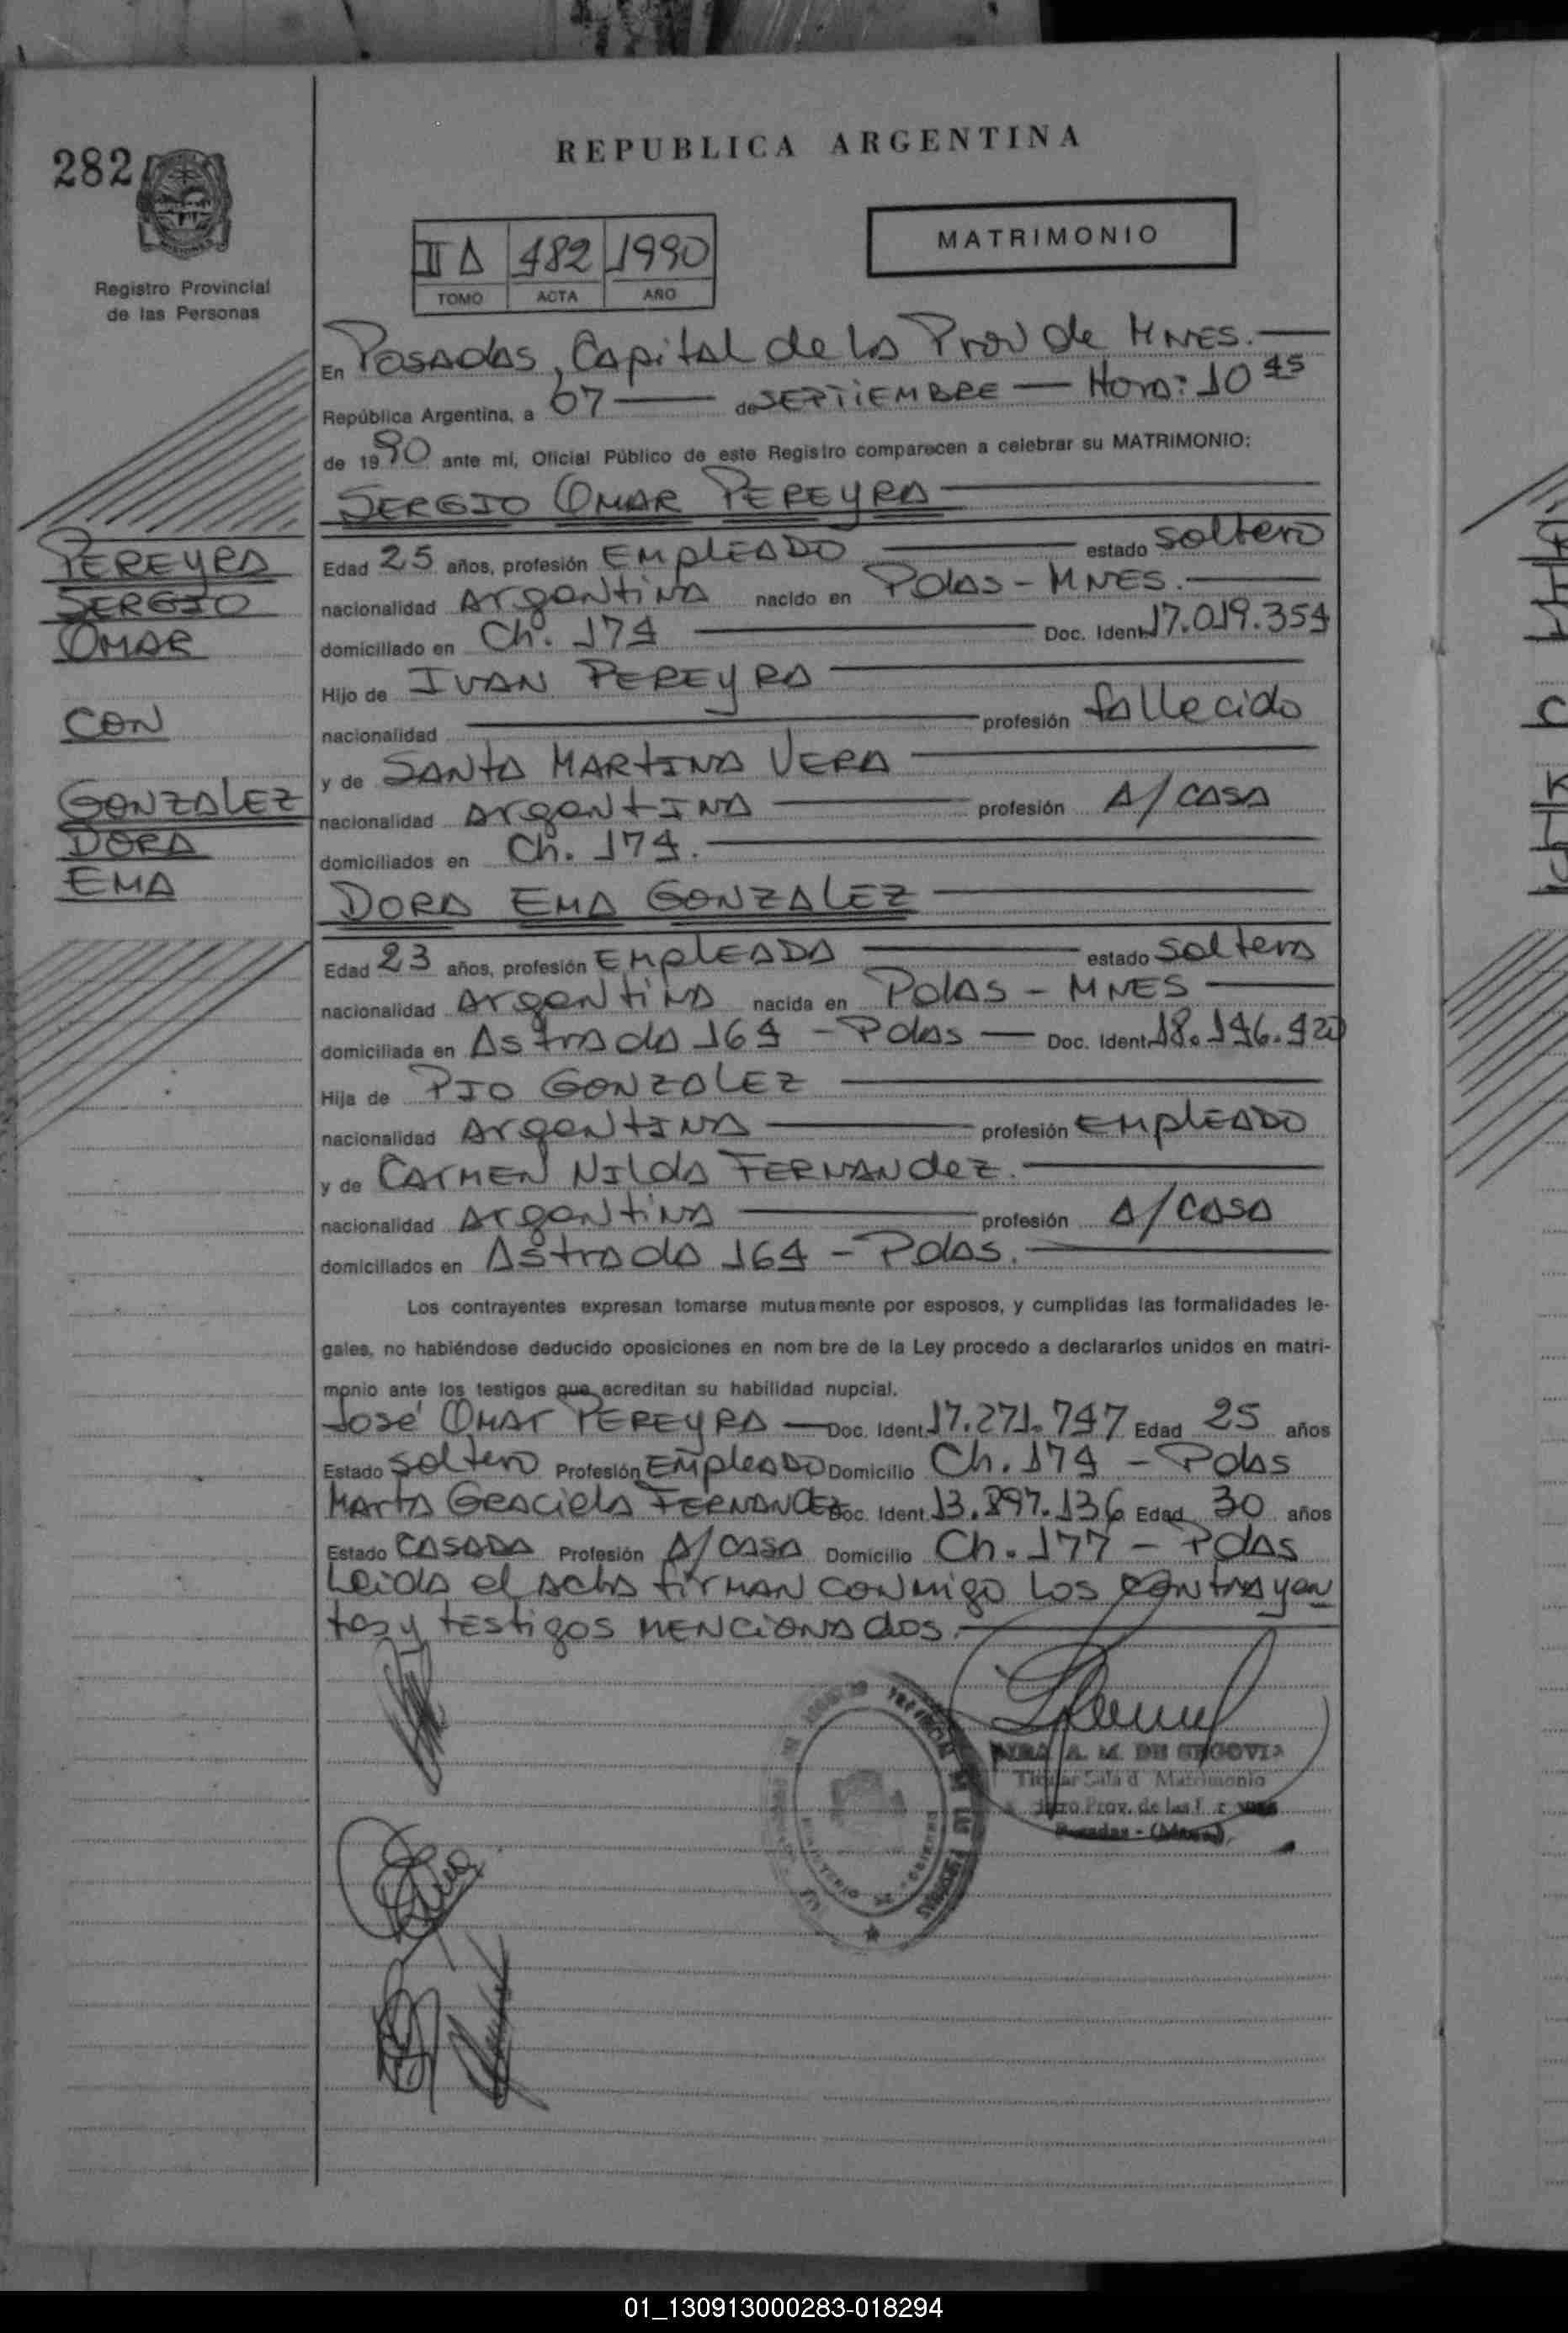 282
REPUBLICA ARGENTINA
Registro Provincial
de las Personas
II A 482 1990
TOMO ACTA AÑO
MATRIMONIO
En Posadas, Capital de la Prov de MNES.
República Argentina, a 07 de SEPTIEMBRE Hora: 10 45
de 1990 ante mí, Oficial Público de este Registro comparecen a celebrar su MATRIMONIO:
SERGIO OMAR PEREYRA
PEREYRA
SERGIO
OMAR
CON
GONZALEZ
DORA
EMA
Edad 25 años, profesión EMPLEADO estado soltero
nacionalidad Argentina nacido en Pdas - MNES.
domiciliado en Ch. 174 Doc. Ident. 17.019.354
Hijo de IVAN PEREYRA
nacionalidad profesión fallecido
y de SANTA MARTINA VERA
nacionalidad Argentina profesión A/casa
domiciliados en Ch. 174.
DORA EMA GONZALEZ
Edad 23 años, profesión EMPLEADA estado soltera
nacionalidad Argentina nacida en Pdas - MNES
domiciliada en Astrada 164 - Pdas Doc. Ident. 18.146.420
Hija de PIO GONZALEZ
nacionalidad Argentina profesión EMPLEADO
y de CARMEN NILda FERNANdeZ.
nacionalidad Argentina profesión A/casa
domiciliados en Astrada 164 - Pdas.
Los contrayentes expresan tomarse mutuamente por esposos, y cumplidas las formalidades le-
gales, no habiéndose deducido oposiciones en nom bre de la Ley procedo a declararlos unidos en matri-
monio ante los testigos que acreditan su habilidad nupcial.
José OMAR PEREYRA Doc. Ident. 17.271.747 Edad 25 años
Estado soltero Profesión EMPLEADO Domicilio Ch. 174 - Pdas
Marta Graciela FERNANDEZ Doc. Ident. 13.897.136 Edad 30 años
Estado CASADA Profesión A/casa Domicilio Ch. 177 - Pdas
Leida el acta firman conmigo los contrayen
tes y testigos mencionados.
A. M. DE SEGOVIA
Titular Sala d Matrimonio
Prov. de las
Posadas - (Mnes)
01_130913000283-018294